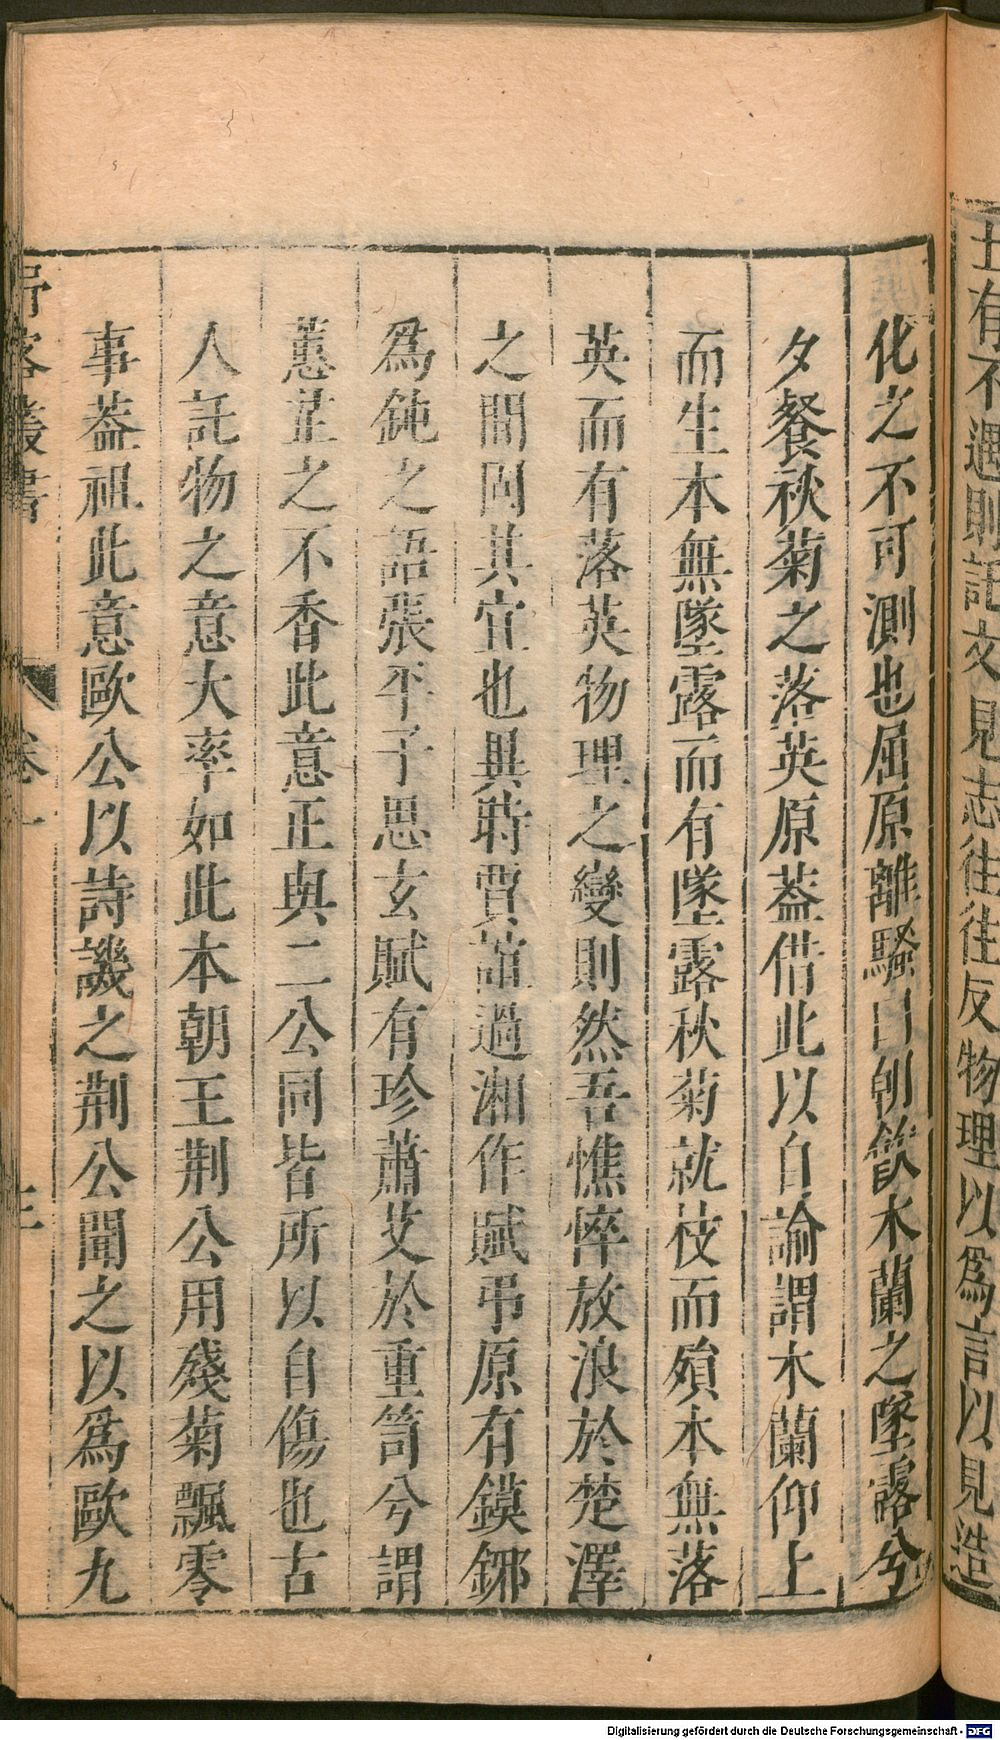 丑有不遇則託文見志往往反物理以為言以見造
化之不可測也屈原離騷曰朝飲木蘭之墜露兮
夕餐秋菊之落英原葢借此以自諭謂木蘭仰上
而生本無墜露而有墜露秋菊就枝而殞本無落
英而有落英物理之變則然吾憔悴放浪於楚澤
之間固其宜也異時賈誼過湘作賦弔原有鏌鋣
為鈍之語張平子思玄賦有珍蕭艾於重笥兮謂
蕙茝之不香此意正與二公同皆所以自傷也古
人託物之意大率如此本朝王荆公用殘菊飄零
事葢祖此意歐公以詩譏之荆公聞之以為歐九
野客叢書 卷一 三
Digitalisierung gefördert durch die Deutsche Forschungsgemeinschaft - DFG